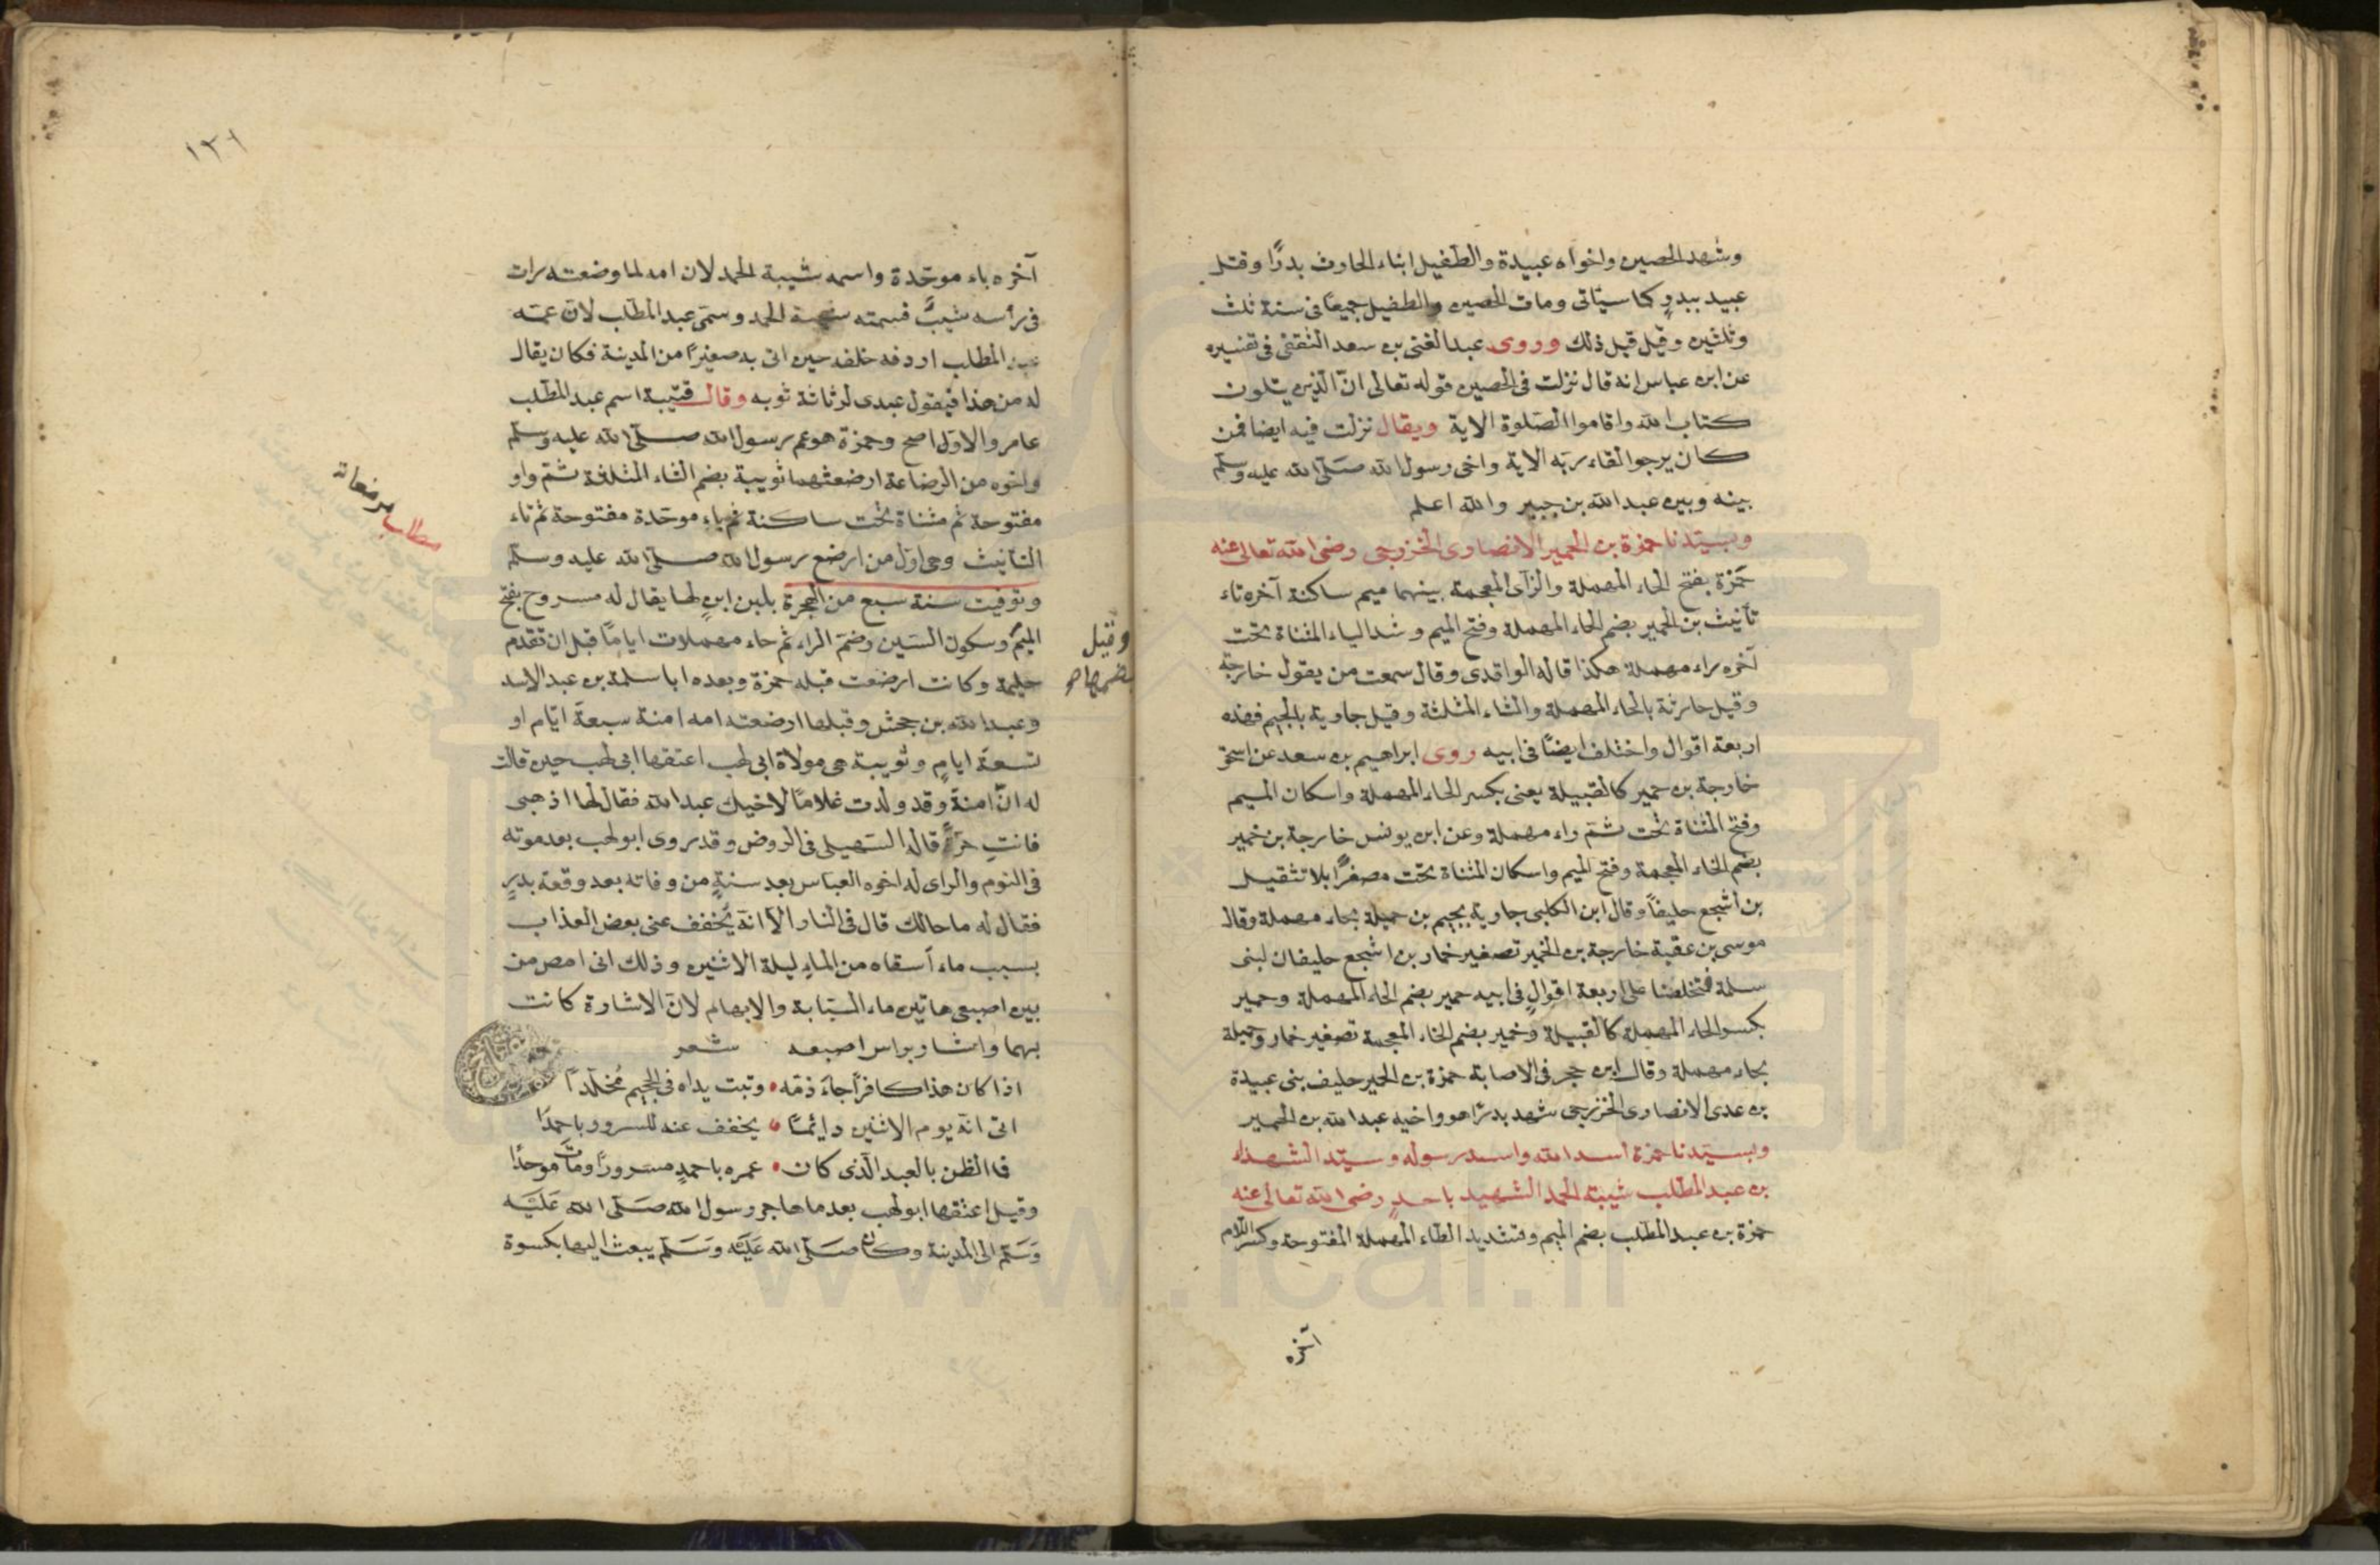 وشهد الحصين واخواه عبيدة والطفيل ابناء الحارث بدرًا وقتل
عبيد ببدرٍ كما سيّاتى ومات الحصين والطفيل جميعًا فى سنة ثلث
وثلثين وقيل قبل ذلك وروى عبد الغنى بن سعد الثقفى فى تفسيره
عن ابن عباس انه قال نزلت فى الحصين قوله تعالى انّ الّذين يتلون
كتاب الله واقاموا الصّلوة الاية ويقال نزلت فيه ايضا فمن
كان يرجوا لقاء ربّه الاية واخى رسول الله صلّى الله عليه وسلّم
بينه وبين عبد الله بن جبير والله اعلم
وبسيّدنا حمزة بن الحمير الانصارى الخزرجى رضى الله تعالى عنه
حمزة بفتح الحاء المهملة والزآى المعجمة بينهما ميم ساكنة آخره تاء
تأنيث بن الحمير بضم الحاء المهملة وفتح الميم وشد الياء المثناة تحت
آخره راء مهملة هكذا قاله الواقدى وقال سمعت من يقول خارجة
وقيل حارثة بالحاء المهملة والثاء المثلثة وقيل جارية بالجيم فهذه
اربعة اقوال واختلف ايضًا فى ابيه روى ابراهيم بن سعد عن اسحق
خارجة بن حمير كالقبيلة يعنى بكسر الحاء المهملة واسكان الميم
وفتح المثناة تحت ثمّ راء مهملة وعن ابن يونس خارجة بن خمير
بضم الخاء المعجمة وفتح الميم واسكان المثناة تحت مصغرًا بلا تثقيل
بن اشجع حليفاً وقال ابن الكلبى جارية بجيم بن حميلة بحاء مهملة وقال
موسى بن عقبة خارجة بن الخمير تصغير خمار بن اشجع حليفان لبنى
سلمة فتخلصنا على اربعة اقوالٍ فى ابيه حمير بضم الحاء المهملة وحمير
بكسر الحاء المهملة كالقبيلة وخمير بضم الخاء المعجمة تصغير خمار وحميلة
بحاء مهملة وقال ابن حجر فى الاصابة حمزة بن الحمير حليف بنى عبيدة
بن عدى الانصارى الخزرجى شهد بدرًا هو واخيه عبد الله بن الحمير
وبسيّدنا حمزة اسد الله واسد رسوله وسيّد الشهداء
بن عبد المطّلب شيبة الحمد الشهيد باحدٍ رضى الله تعالى عنه
حمزة بن عبد المطّلب بضم الميم وتشديد الطاء المهملة المفتوحة وكسر اللام
آخره
١٣١
آخره باء موحّدة واسمه شيبة الحمد لان امه لما وضعته رات
فى رأسه شيبٌ فسمته شيبة الحمد وسمّى عبد المطّلب لانّ عمّه
المطلب اردفه خلفه حين اتى به صغيرًا من المدينة فكان يقال
له من هذا فيقول عبدى لرثاثة ثوبه وقال قتيبة اسم عبد المطّلب
عامر والاوّل اصح وحمزة هو عم رسول الله صلّى الله عليه وسلّم
واخوه من الرضاعة ارضعتهما ثويبة بضم الثاء المثلثة ثمّ واو
مفتوحة ثم مثناة تحت ساكنة ثم باء موحّدة مفتوحة ثم تاء
التأنيث وهى اوّل من ارضع رسول الله صلّى الله عليه وسلّم
وتوفيت سنة سبع من الهجرة بلبن ابنٍ لها يقال له مسروح بفتح
الميم وسكون السّين وضمّ الراء ثم حاء مهملات ايامًا قبل ان تقدم
حليمة وكانت ارضعت قبله حمزة وبعده ابا سلمة بن عبد الاسد
وعبد الله بن جحش وقبلها ارضعته امه امنة سبعة ايّام او
تسعة ايامٍ وثويبة هى مولاة ابى لهب اعتقها ابى لهب حين قالت
له انّ امنة وقد ولدت غلامًا لاخيك عبد الله فقال لها اذهبى
فانتِ حرّةً قاله السّهيلى فى الروض وقد روى ابو لهب بعد موته
فى النوم والراى له اخوه العباس بعد سنةٍ من وفاته بعد وقعة بدرٍ
فقال له ما حالك قال فى النار الّا انّه يُخفف عنى بعض العذاب
بسبب ماء أسقاه من الماء ليلة الاثنين وذلك انى امص من
بين اصبعى هاتين ماء السبّابة والابهام لانّ الاشارة كانت
بهما واشار براس اصبعه شعر
اذا كان هذا كافراً جآء ذمّه • وتبت يداه فى الجحيم مُخلّداً
اتى انّه يوم الاثنين دايمًا • يخفف عنه للسرور باحمدَا
فما الظن بالعبد الّذى كان • عمره باحمدٍ مسرورًا وماتَ موحدًا
وقيل اعتقها ابو لهب بعد ما هاجر رسول الله صَلّى الله عَلَيْه
وَسَلّم الى المدينة وكان صَلّى الله عَلَيْه وَسَلّم يبعث اليها بكسوة
وقيل
بضمها صح
مطلب مرضعاته
www.icar.ir